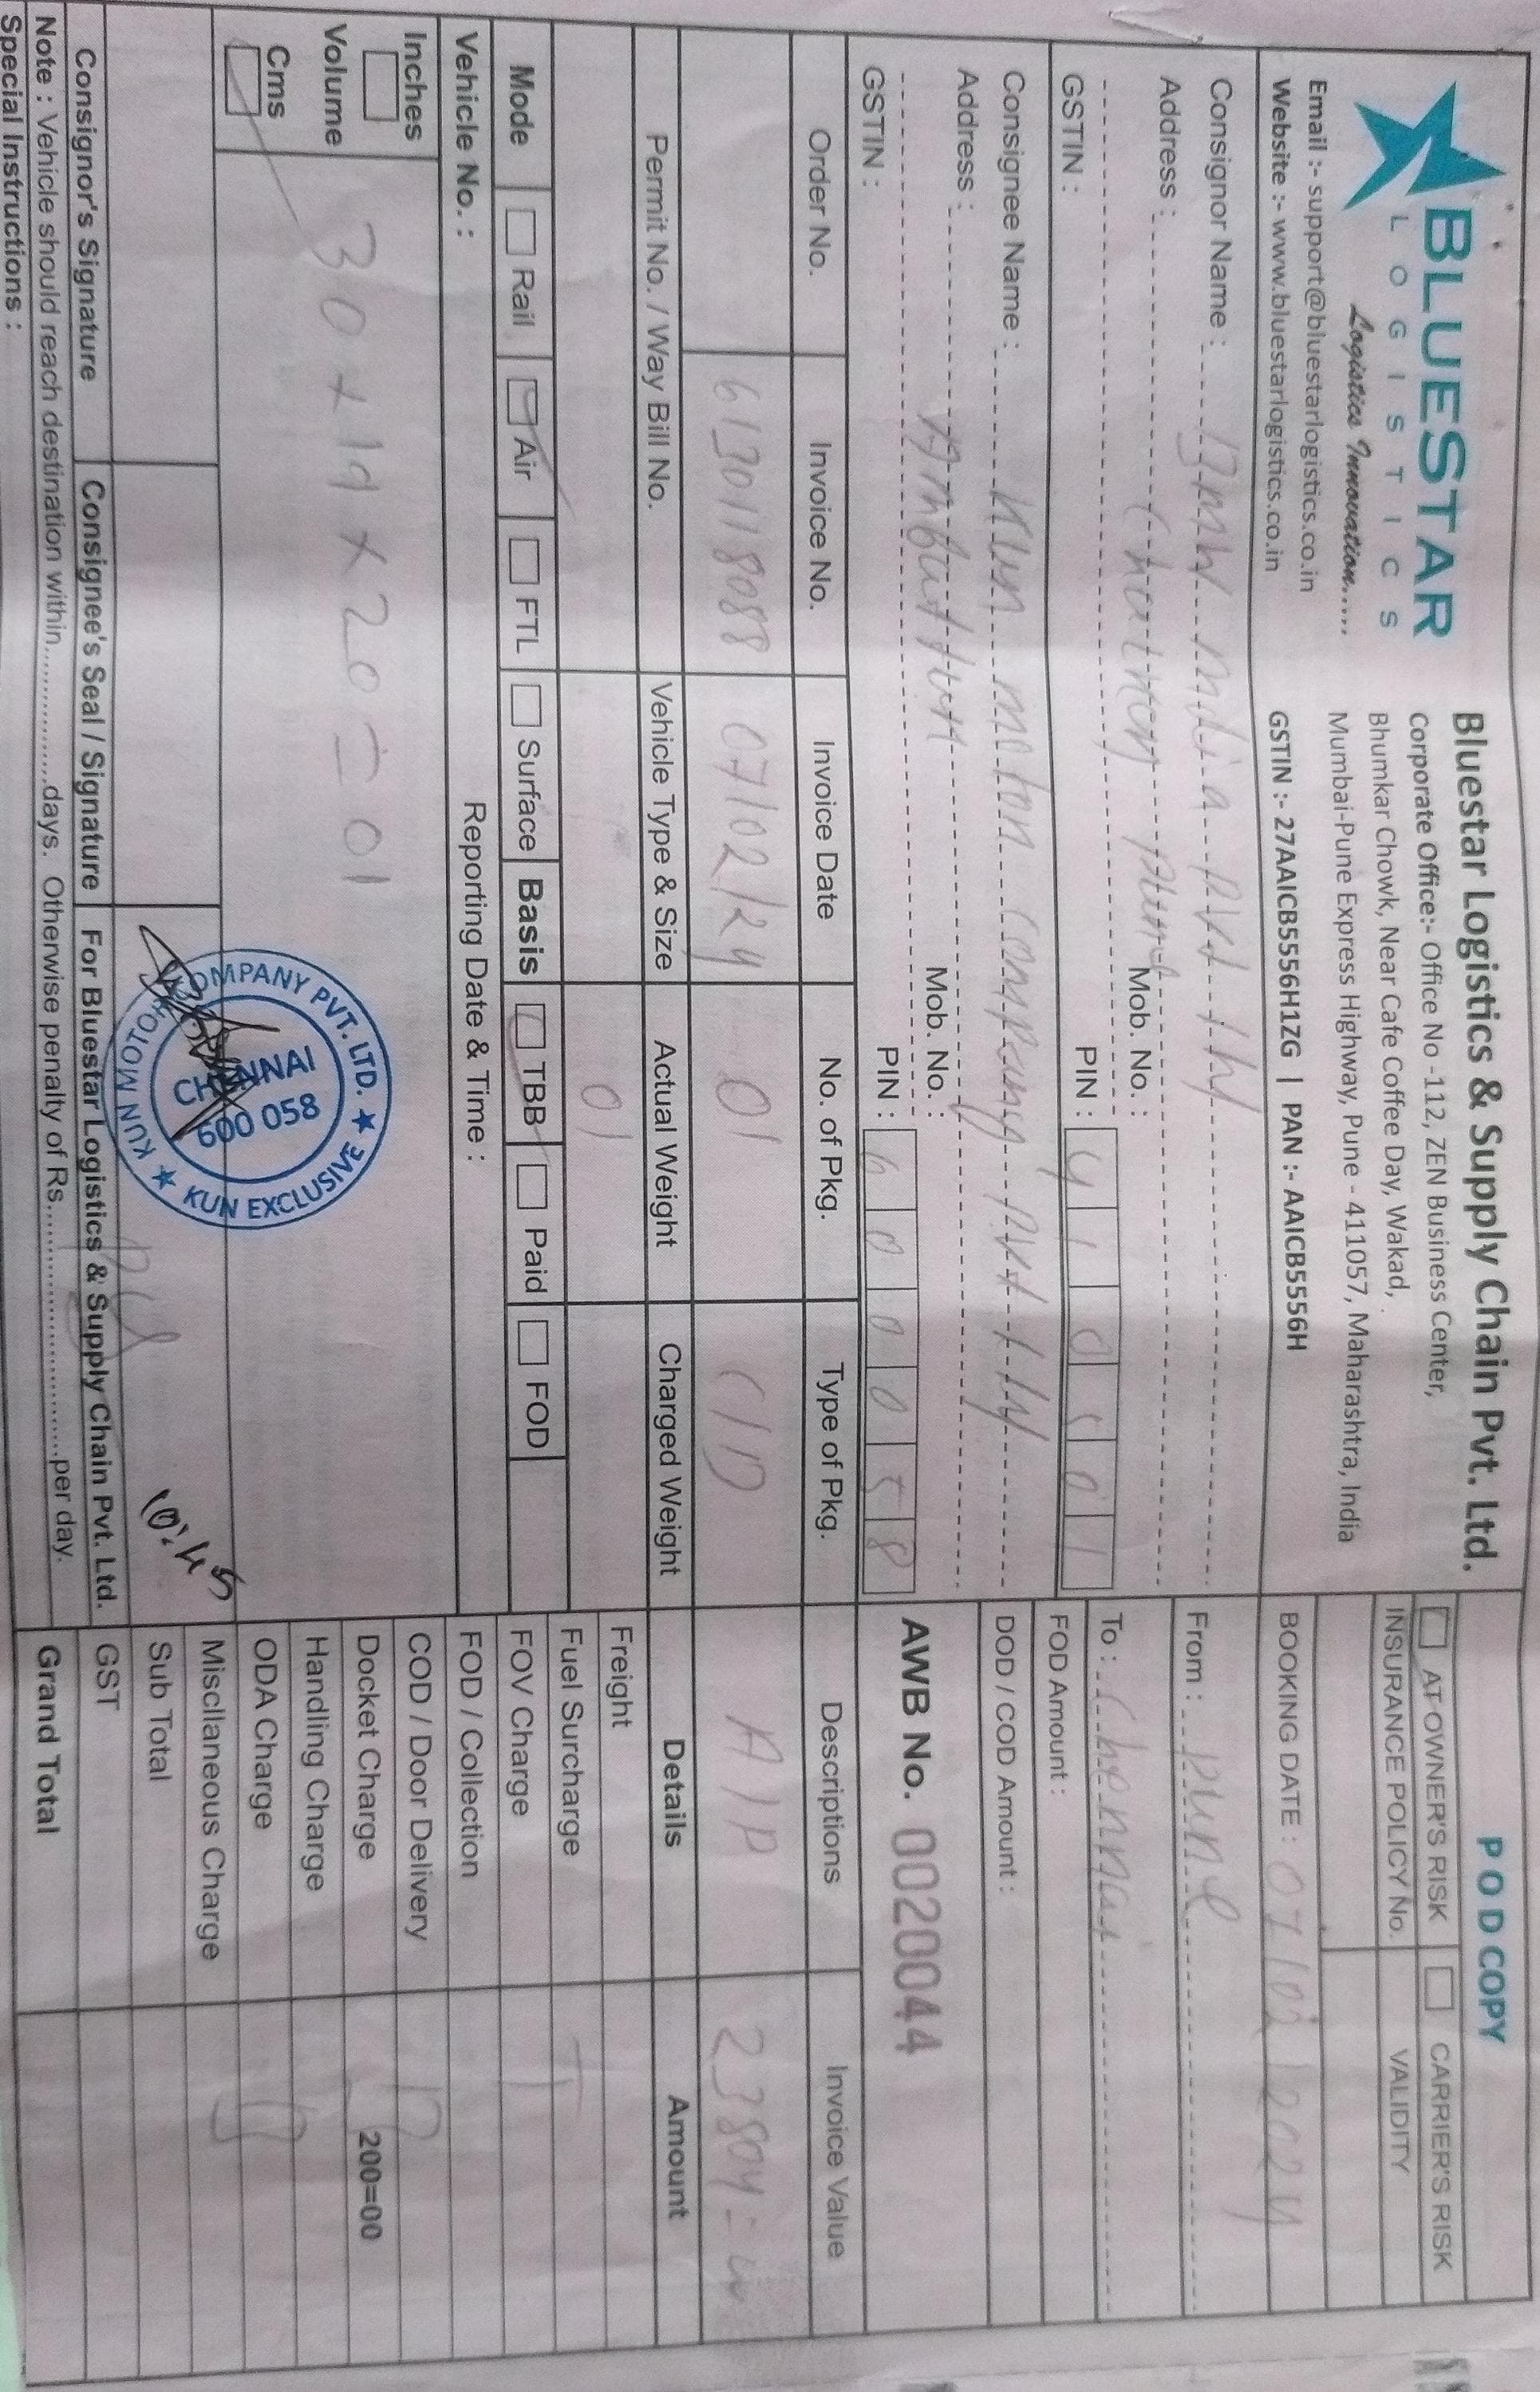 BLUESTAR
LOGISTICS
Logistics Innovation.....
Email :- support@bluestarlogistics.co.in
Website :- www.bluestarlogistics.co.in
Bluestar Logistics & Supply Chain Pvt. Ltd.
Corporate Office:- Office No -112, ZEN Business Center,
Bhumkar Chowk, Near Cafe Coffee Day, Wakad,
Mumbai-Pune Express Highway, Pune - 411057, Maharashtra, India
GSTIN :- 27AAICB5556H1ZG | PAN :- AAICB5556H
POD COPY
AT OWNER'S RISK CARRIER'S RISK
INSURANCE POLICY No. VALIDITY
BOOKING DATE : 07/02/2024
From : pune
To : Chennai
FOD Amount :
DOD / COD Amount :
AWB No. 0020044
Consignor Name : BMW India pvt ltd
Address : pune
Mob. No. :
PIN : 410501
GSTIN :
Consignee Name : Kun moton company pvt ltd
Address : Ambattur
Mob. No. :
PIN : 600058
GSTIN :
Order No. Invoice No. Invoice Date No. of Pkg. Type of Pkg. Descriptions Invoice Value
6130118088 07/02/24 01 A/P 23804=
Permit No. / Way Bill No. Vehicle Type & Size Actual Weight Charged Weight Details Amount
01
Freight
Fuel Surcharge
FOV Charge
FOD / Collection
COD / Door Delivery
Docket Charge 200=00
Handling Charge
ODA Charge
Miscllaneous Charge
Sub Total
GST
Grand Total
Mode Rail Air FTL Surface Basis TBB Paid FOD
Vehicle No. : Reporting Date & Time :
Inches
Volume
Cms
30 x 19 x 20 = 01
KUN MOTOR COMPANY PVT. LTD. ★ KUN EXCLUSIVE ★
CHENNAI
600 058
10:45
Consignor's Signature Consignee's Seal / Signature For Bluestar Logistics & Supply Chain Pvt. Ltd.
Note : Vehicle should reach destination within................days. Otherwise penalty of Rs..............................per day.
Special Instructions :